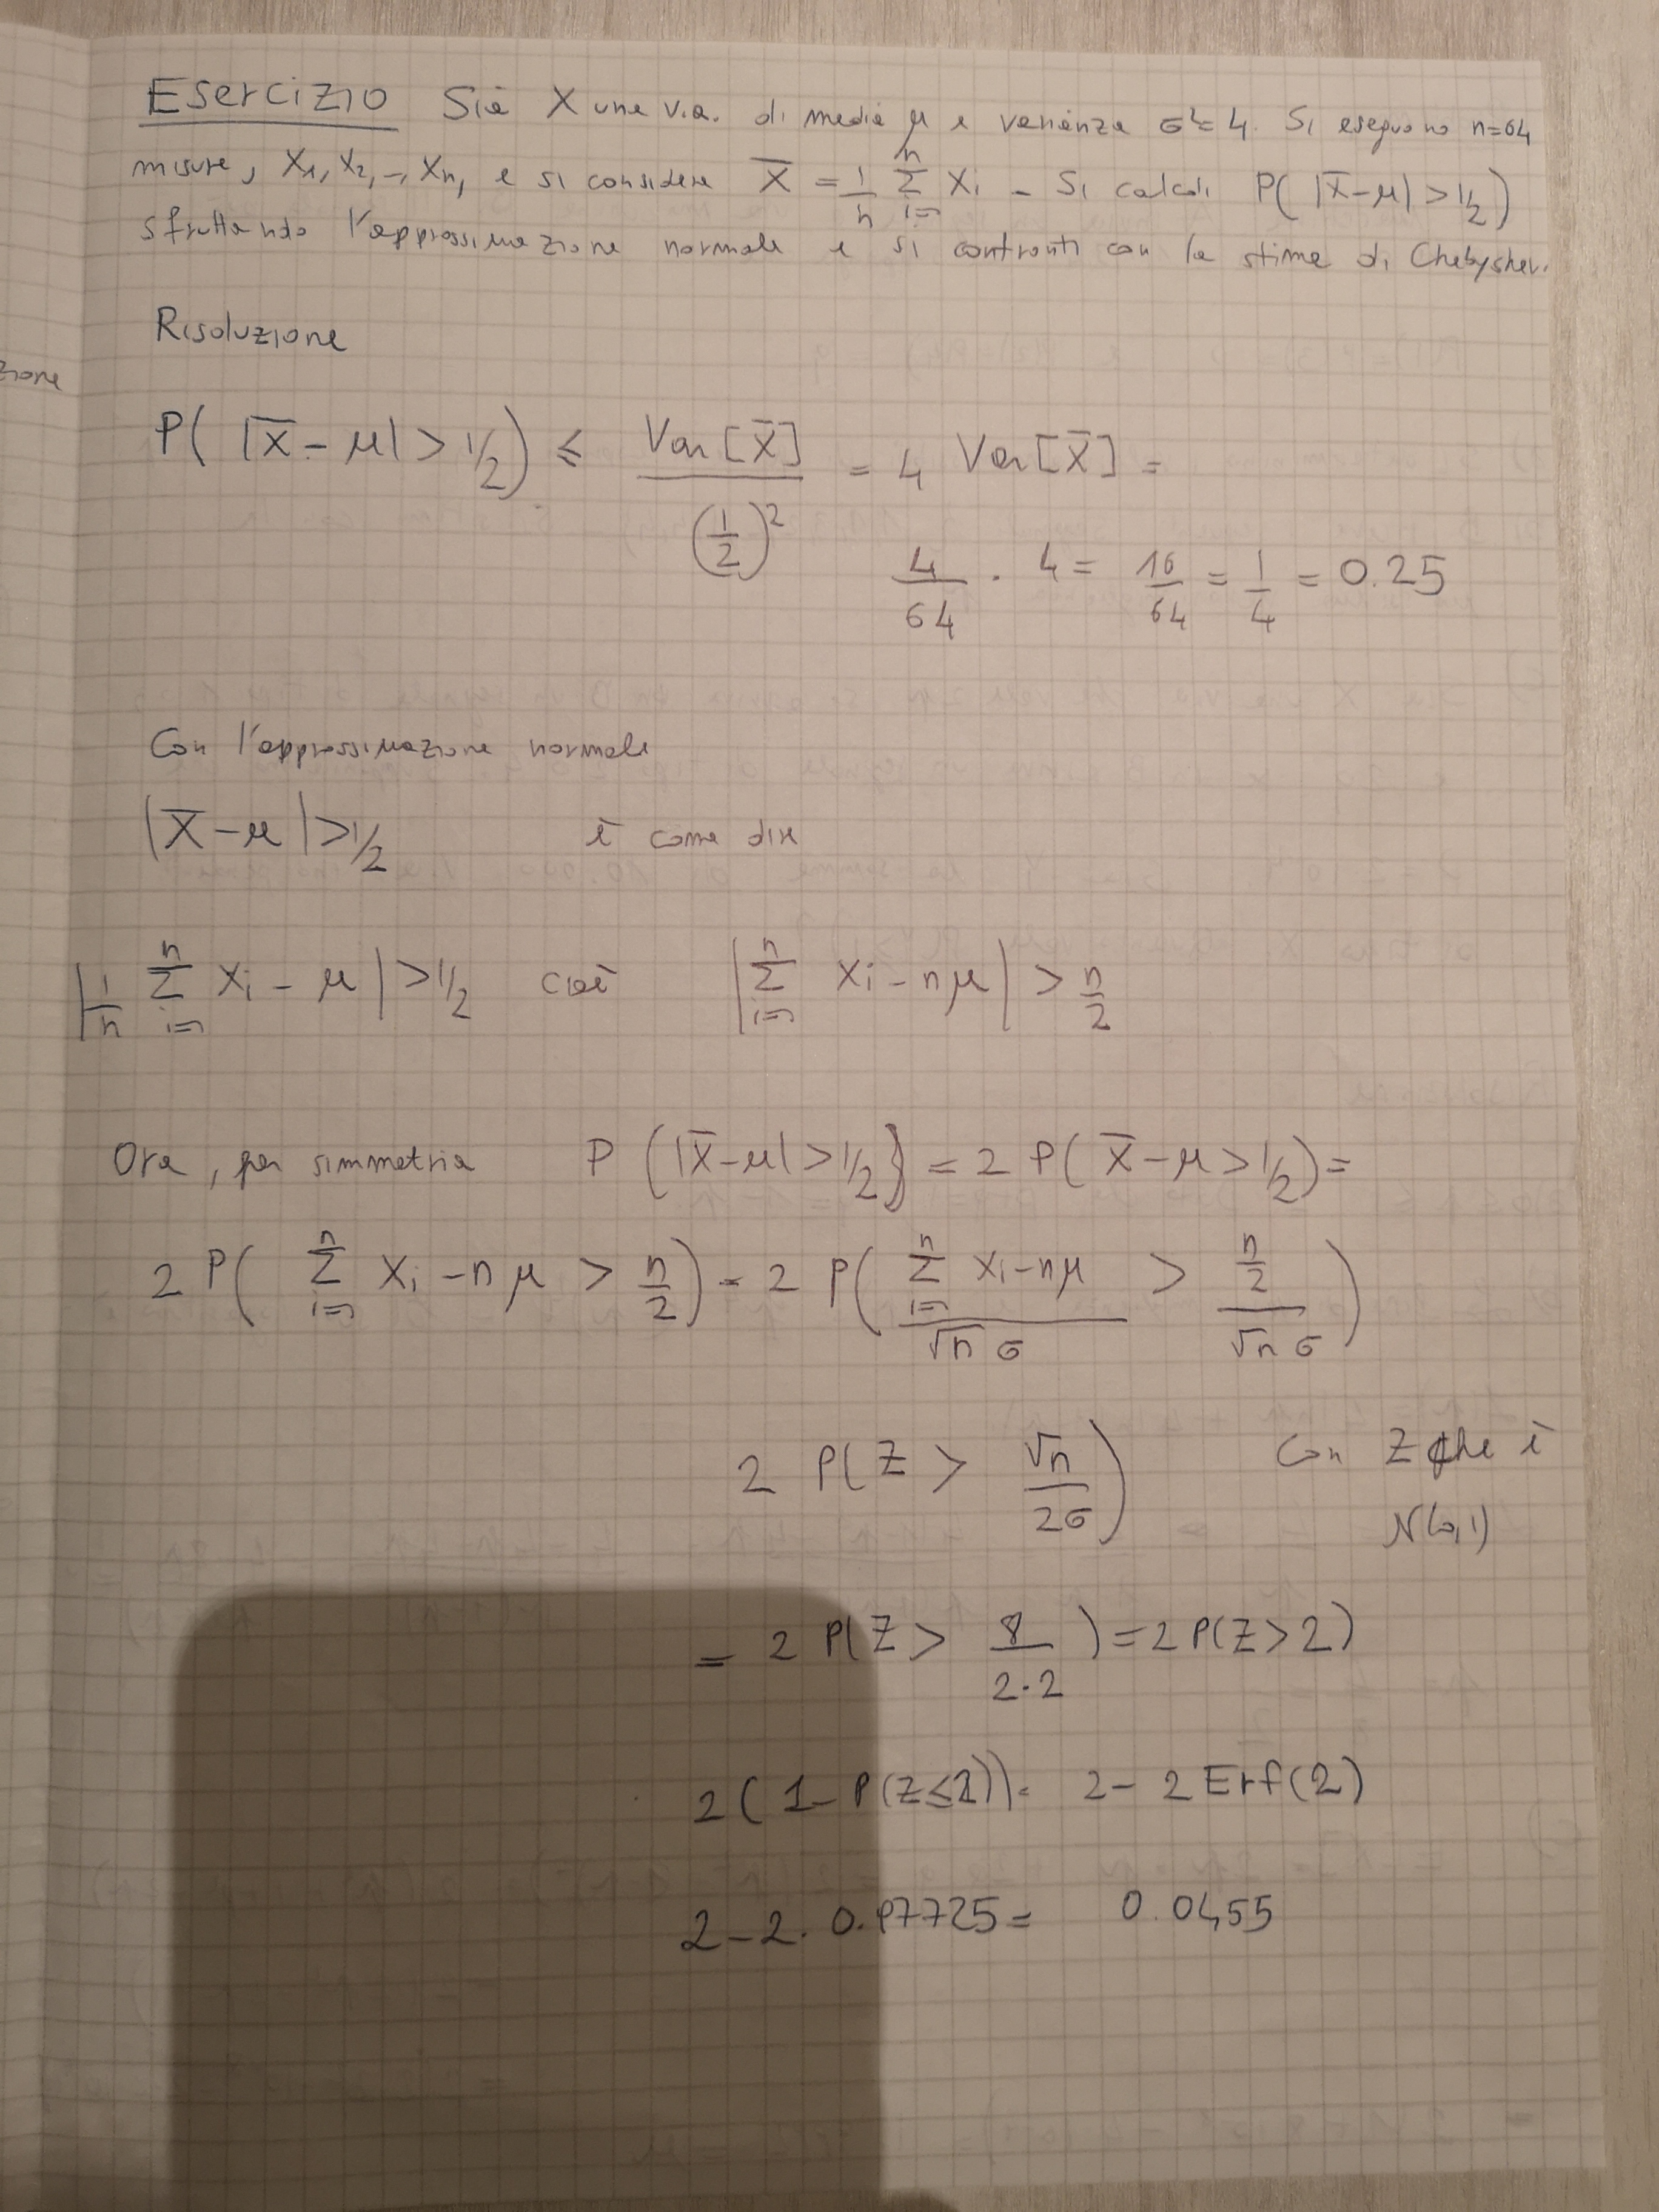 Esercizio Sia X una v.a. di media μ e varianza σ²=4. Si eseguono n=64
misure, X₁, X₂, -, Xₙ, e si considera X̅ = 1/n Σ_{i=1}^{n} Xᵢ - Si calcoli P( |X̅-μ| > 1/2 )
sfruttando l'approssimazione normale e si confronti con la stima di Chebyshev.
Risoluzione
zione
P( |X̅ - μ| > 1/2 ) ≤ Var[X̅] / (1/2)² = 4 Var[X̅] =
4/64 · 4 = 16/64 = 1/4 = 0.25
Con l'approssimazione normale
|X̅ - μ| > 1/2 è come dire
|1/n Σ_{i=1}^{n} Xᵢ - μ| > 1/2 cioè |Σ_{i=1}^{n} Xᵢ - nμ| > n/2
Ora, per simmetria P (|X̅-μ| > 1/2) = 2 P( X̅ - μ > 1/2) =
2 P( Σ_{i=1}^{n} Xᵢ - nμ > n/2 ) = 2 P( (Σ_{i=1}^{n} Xᵢ - nμ)/(√n σ) > (n/2)/(√n σ) )
2 P(Z > √n/2σ) con Z che è
N(0,1)
= 2 P(Z > 8/2·2 ) = 2 P(Z > 2)
2 ( 1 - P(Z ≤ 2)) = 2 - 2 Erf(2)
2 - 2 · 0.97725 = 0.0455